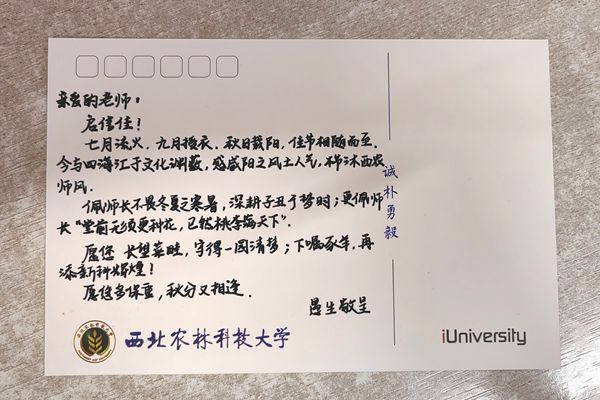 亲爱的老师：
启信佳！
七月流火，九月授衣。秋日载阳，佳节相随而至。
今与四海汇于文化渊薮，感咸阳之风土人气，沐西农
师风。
佩师长不畏冬夏之寒暑，深耕子丑于梦时；更佩师
长“堂前无须更种花，已然桃李满天下”。
愿您 长望菜畦，守得一园清梦；下嘱豕羊，再
添新科辉煌！
愿您多保重，秋分又相逢。
愚生敬呈
诚朴勇毅
西北农林科技大学
iUniversity